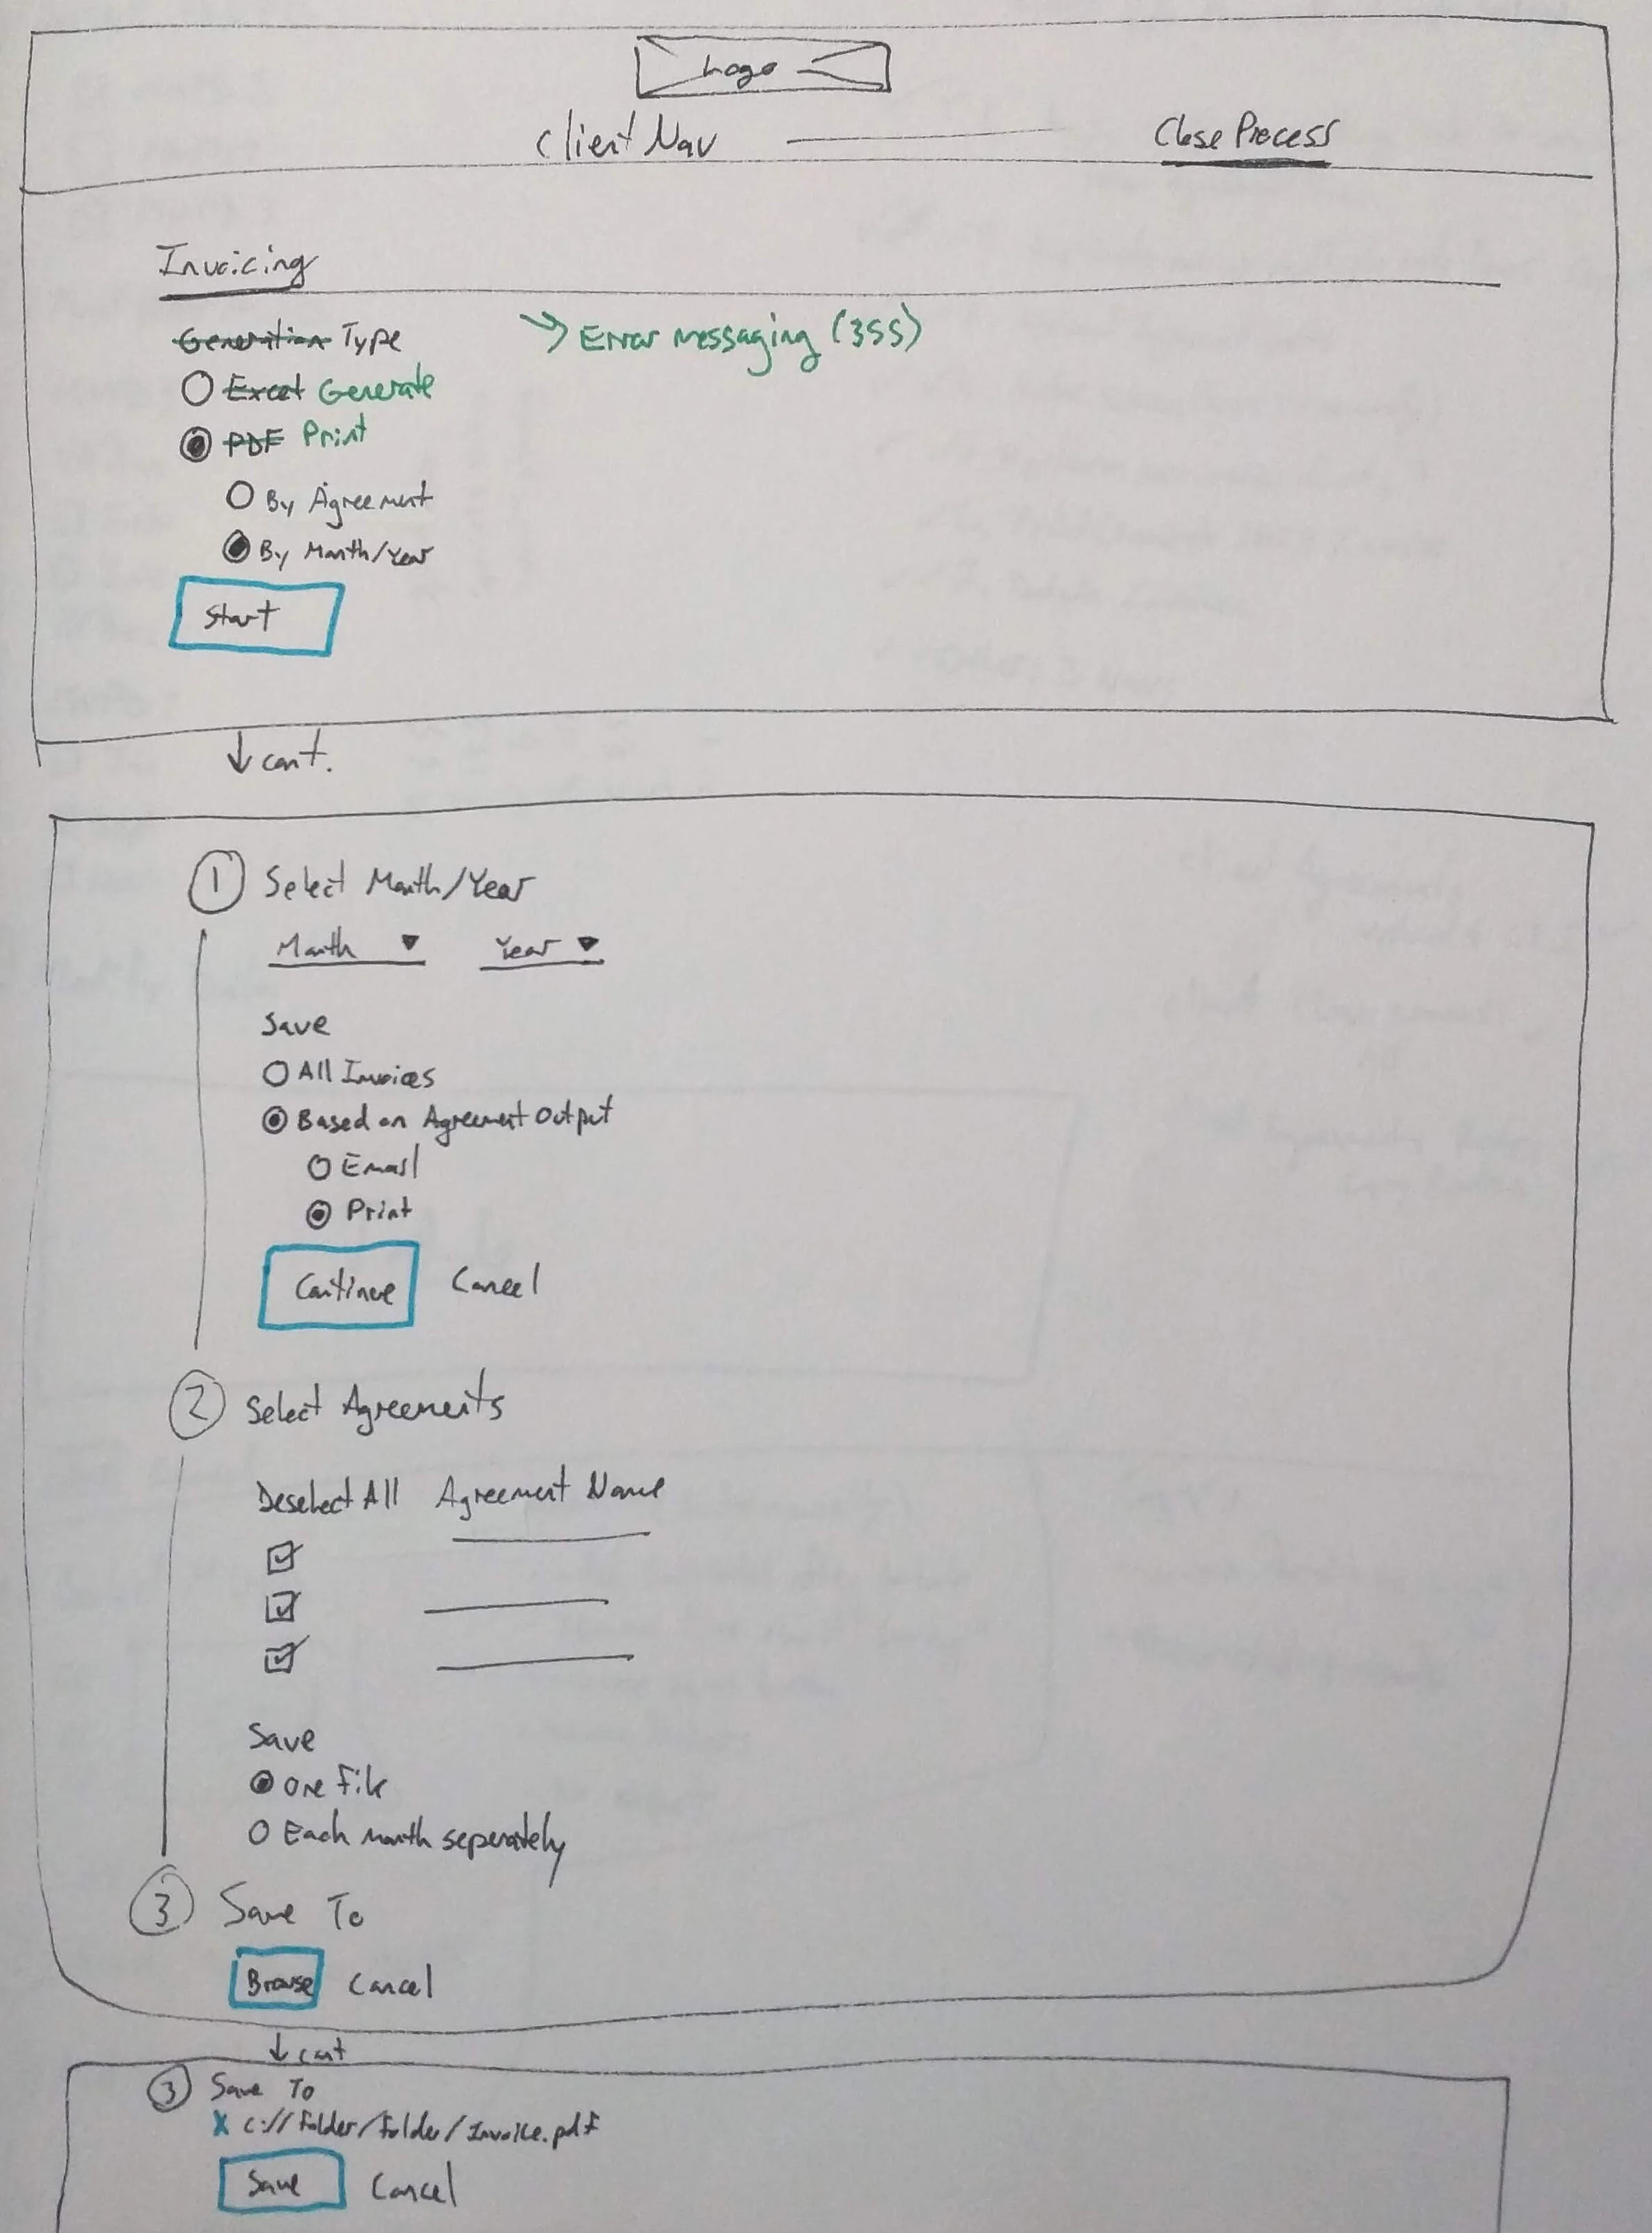 Logo
Client Nav
Close Process
Invoicing
Generation Type
→ Error messaging (355)
Excel Generate
PDF Print
By Agreement
By Month/Year
Start
↓ cont.
1 Select Month/Year
Month ▼ Year ▼
Save
All Invoices
Based on Agreement Output
Email
Print
Continue Cancel
2 Select Agreements
Deselect All Agreement Name
Save
One File
Each month seperately
3 Save To
Browse Cancel
↓ cont
3 Save To
X C://Folder/Folder/Invoice.pdf
Save Cancel